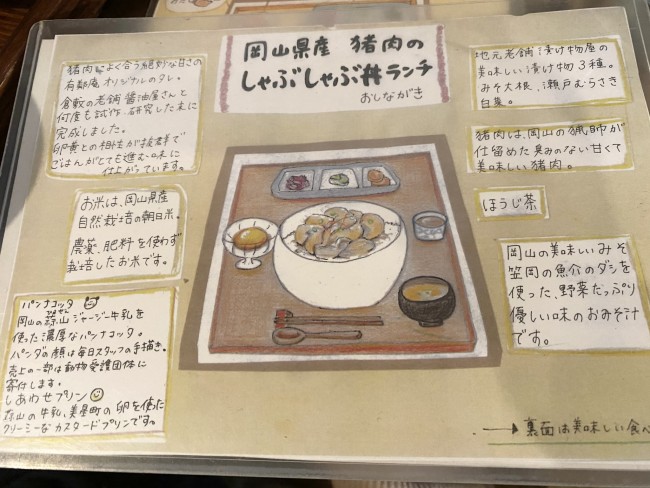 岡山県産 猪肉の
しゃぶしゃぶ丼ランチ
おしながき
猪肉によく合う絶妙な甘さの
有鄰庵オリジナルのタレ。
倉敷の老舗醤油屋さんと
何度も試作、研究した末に
完成しました。
卵黄との相性が抜群で
ごはんがとても進む味に
仕上がっています。
お米は、岡山県産
自然栽培の朝日米。
農薬、肥料を使わず
栽培したお米です。
パンナコッタ
岡山の蒜山ジャージー牛乳を
ひるぜん
使った濃厚なパンナコッタ。
パンダの顔は毎日スタッフの手描き。
売上の一部は動物愛護団体に
寄付します。
しあわせプリン
蒜山の牛乳、美星町の卵を使った
クリーミーなカスタードプリンです。
地元老舗漬け物屋の
美味しい漬け物3種。
みそ大根、瀬戸むらさき
白菜。
猪肉は、岡山の猟師が
仕留めた臭みのない甘くて
美味しい猪肉。
ほうじ茶
岡山の美味しいみそ
笠岡の魚介のダシを
使った、野菜たっぷり
優しい味のおみそ汁
です。
→裏面は美味しい食べ